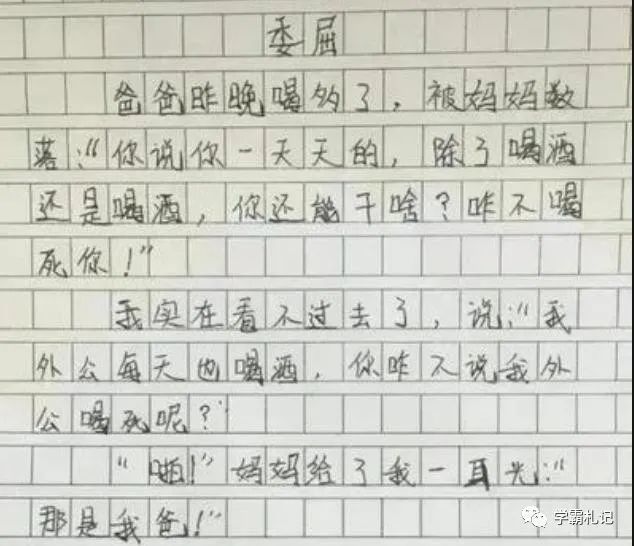 委屈
爸爸昨晚喝多了，被妈妈数
落:“你说你一天天的，除了喝酒
还是喝酒，你还能干啥？咋不喝
死你！”
我实在看不过去了，说:“我
外公每天也喝酒，你咋不说我外
公喝死呢？”
“啪！”妈妈给了我一耳光:“
那是我爸！”
学霸札记